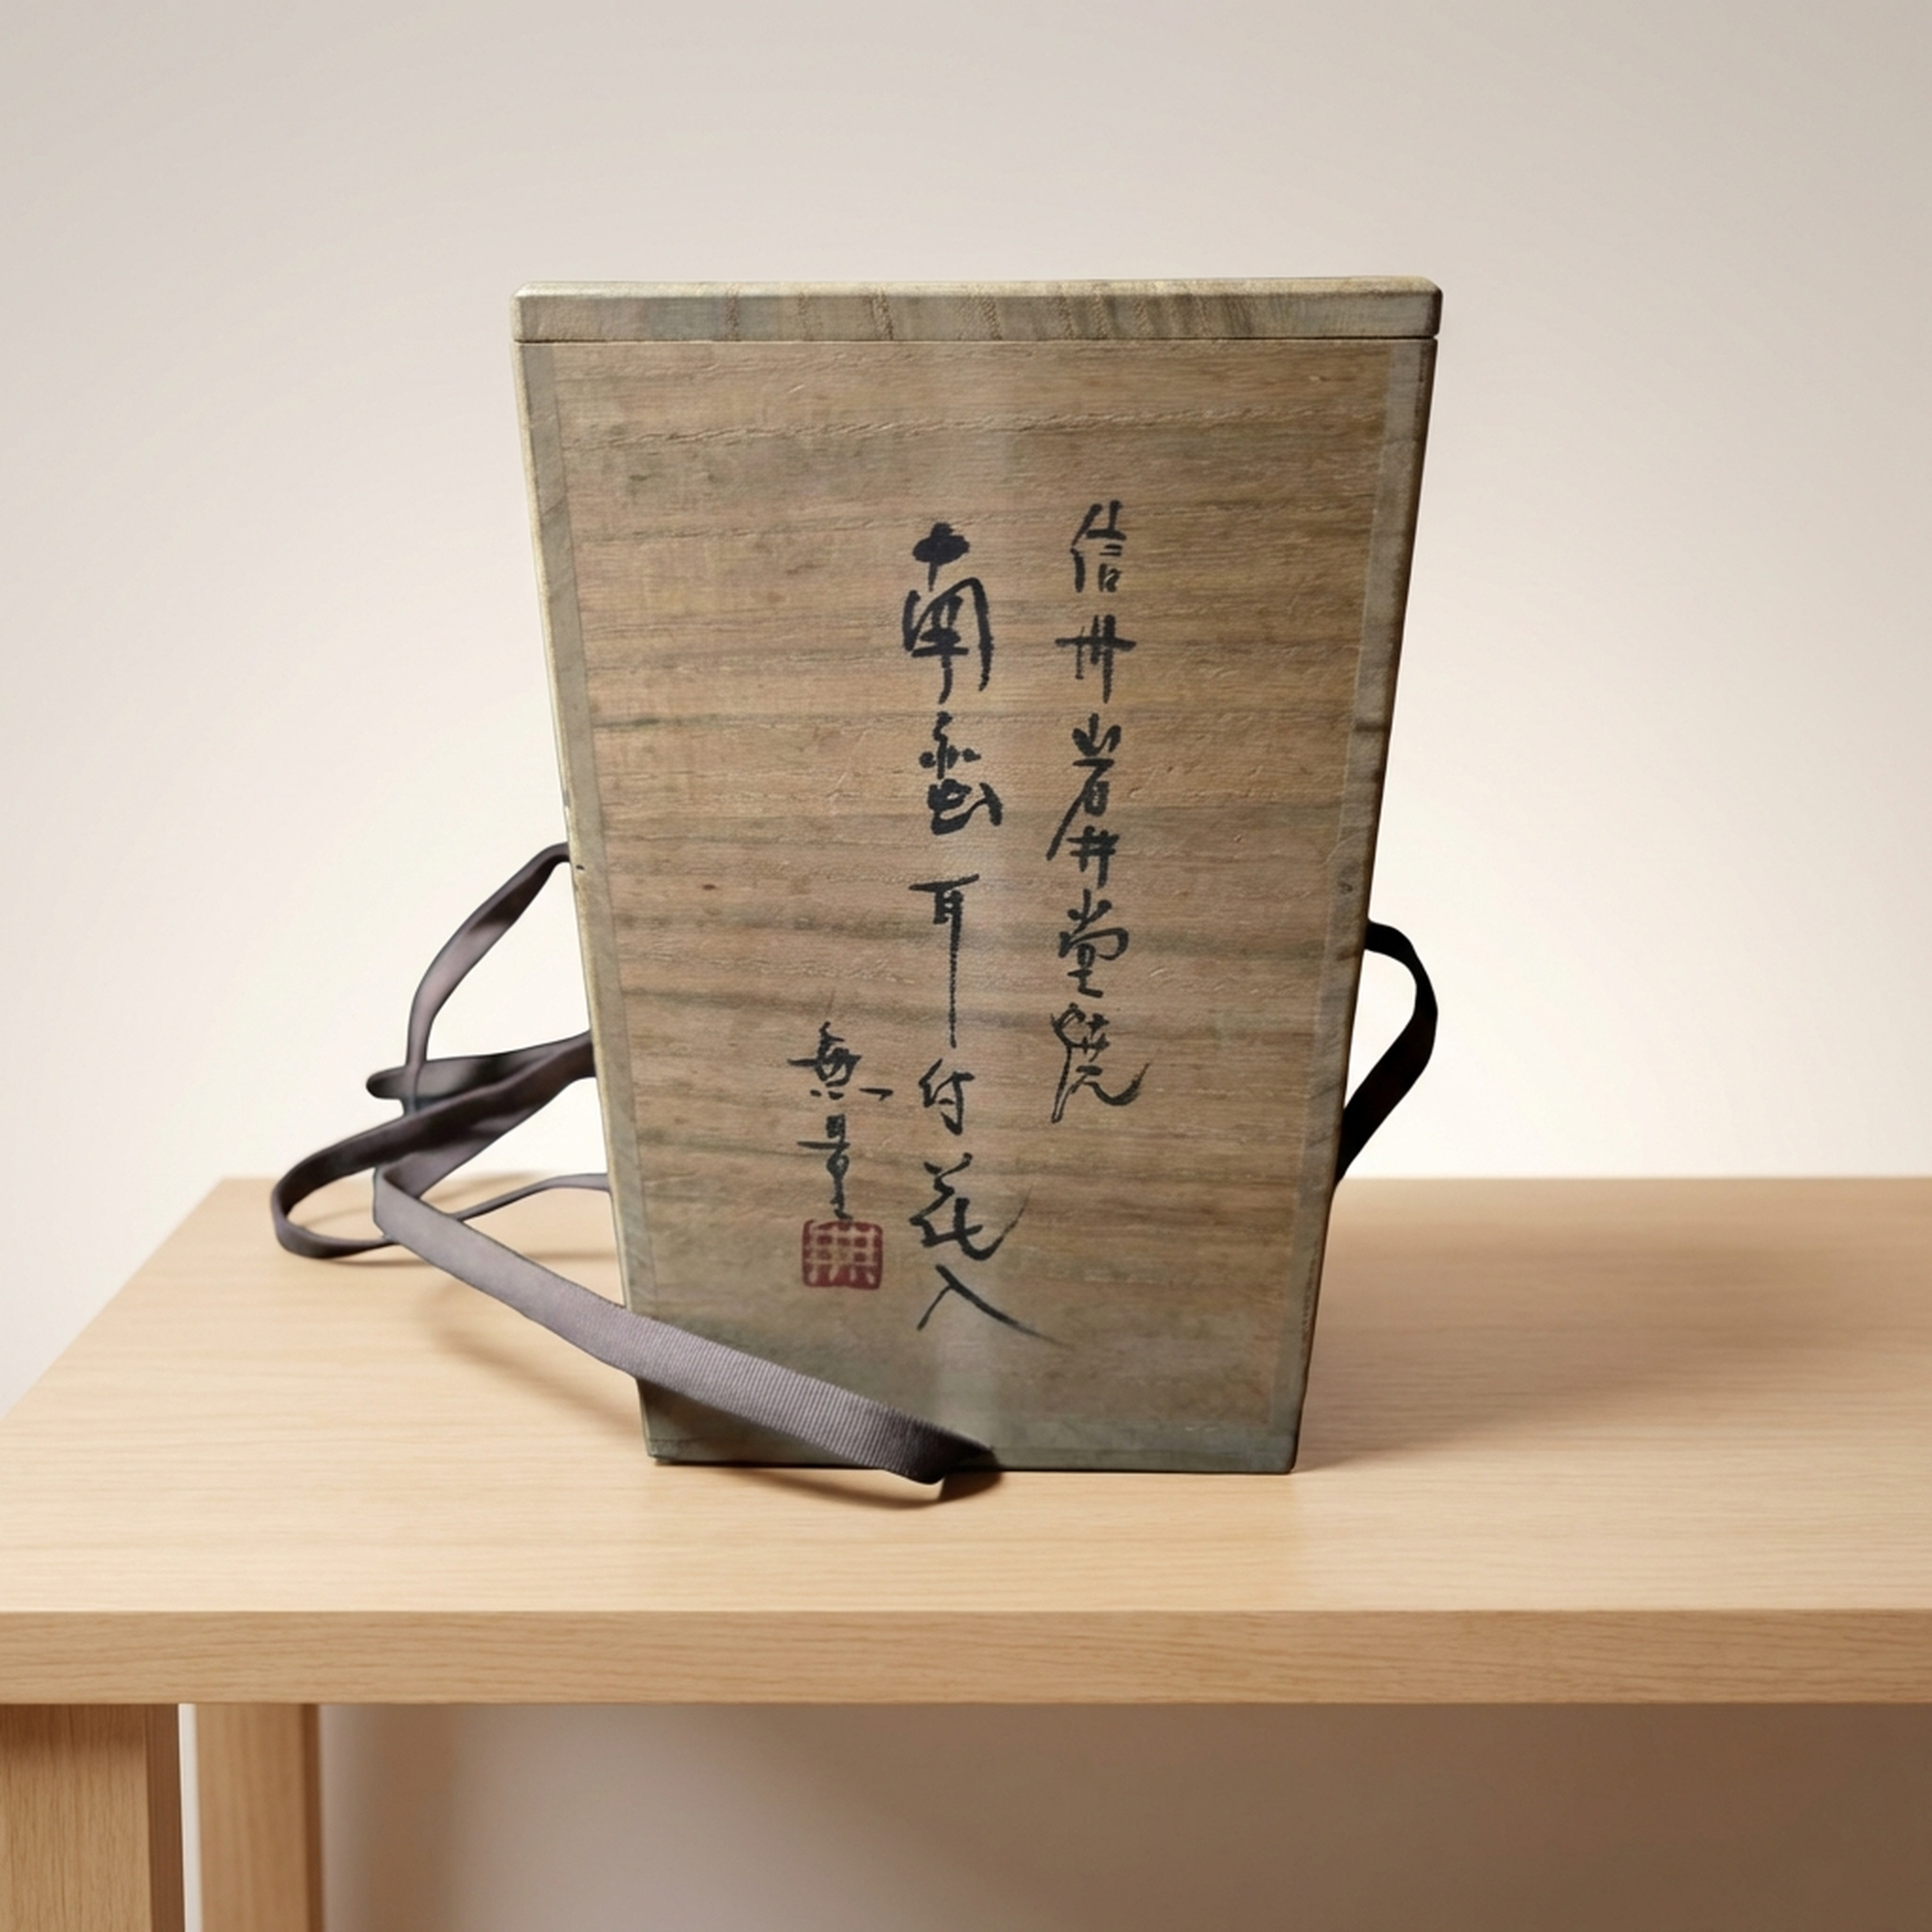 信州岩井堂焼
南蛮耳付花入
無量